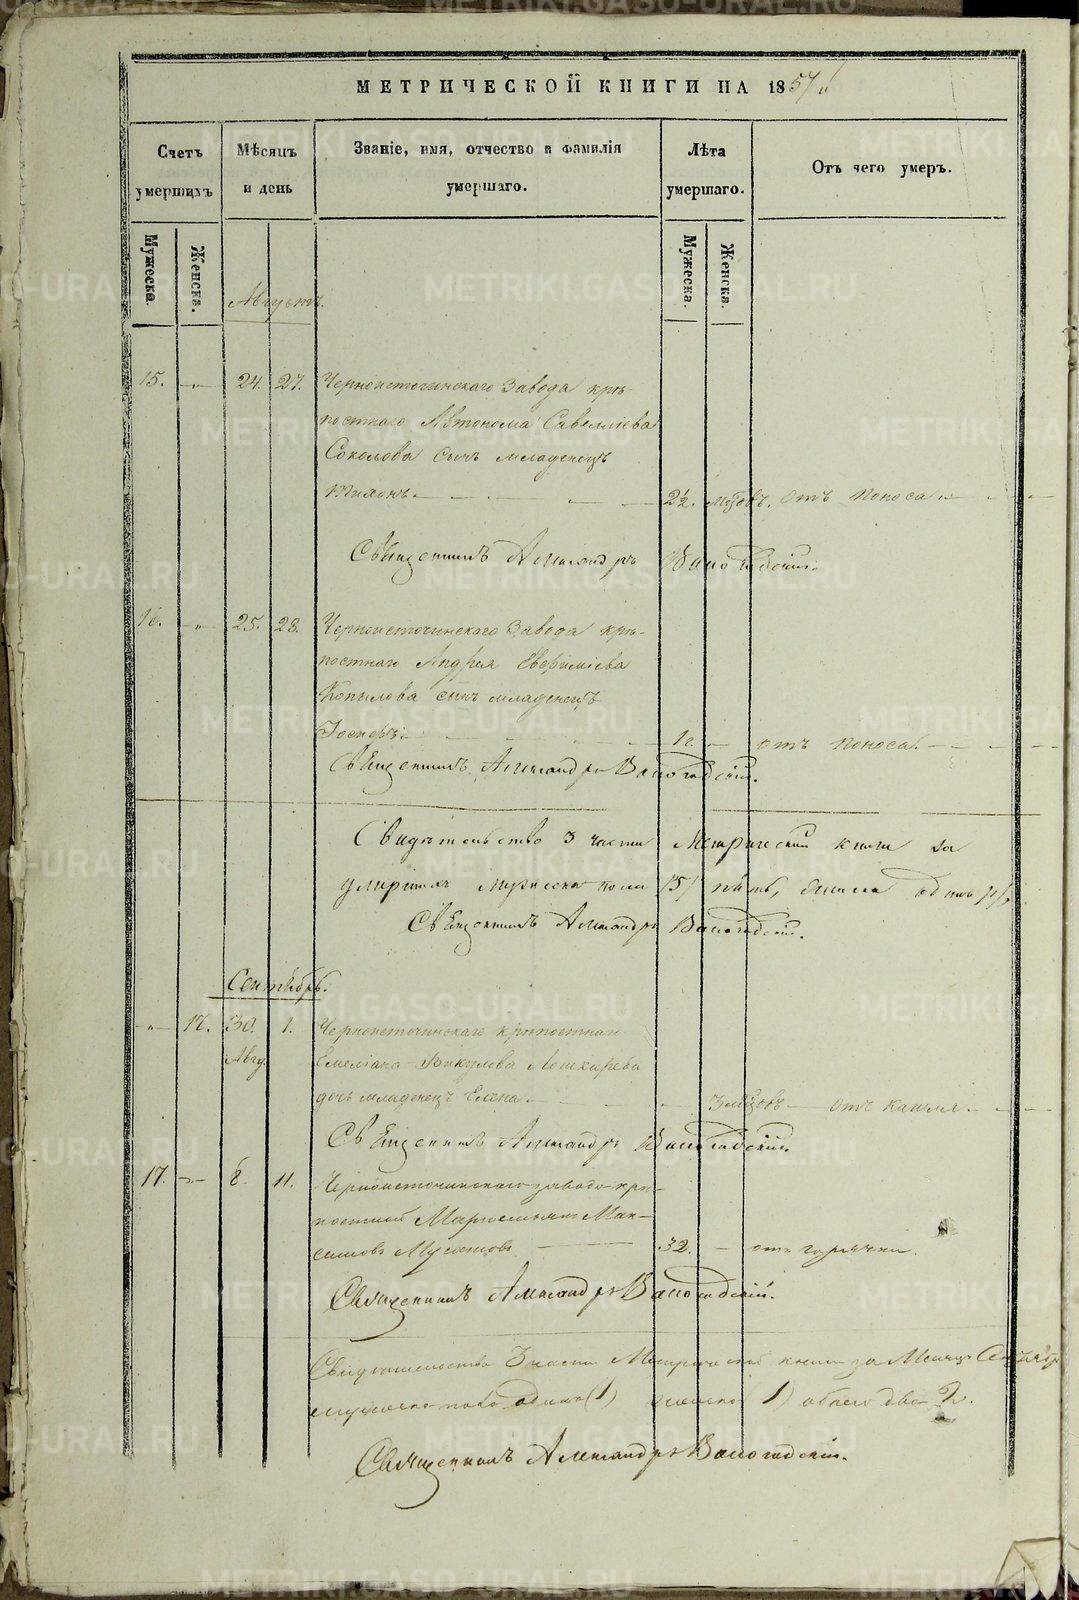 МЕТРИЧЕСКОЙ КНИГИ НА 1857
Счетъ умершихъ
Мѣсяцъ и день
Званіе, имя, отчество и фамилія умершаго.
Лѣта умершаго.
Отъ чего умеръ.
Мужеска.
Женска.
Мужеска.
Женска.
Августъ
15. 24. 27. Черноисточинскаго Завода крѣ-
постнаго Автонома Савеліева
Соколова сынъ младенецъ
Тихонъ 2½ мѣ. отъ поноса
Священникъ Александръ Вологодскій.
16. 25. 28. Черноисточинскаго Завода крѣ-
постнаго Андрея Евфиміева
Копылова сынъ младенецъ
1 г. отъ поноса.
Священникъ Александръ Вологодскій.
Свидѣтельство 3 части Метрической книги за
умершихъ мужеска пола
Священникъ Александръ Вологодскій.
Сентябрь.
12. 30. 1. Черноисточинскаго крѣпостнаго
Авгу. Емеліана Викулова
дочь младенецъ Елена 3 отъ кашля
Священникъ Александръ Вологодскій.
17. 8. 11. Черноисточинскаго завода крѣ-
постной Мак-
симовъ 32. отъ горячки.
Священникъ Александръ Вологодскій.
Свидѣтельство 3 части Метрической книги за Месяцъ Сентябр
мужеска пола одинъ (1) женска 1) обоего два 2.
Священникъ Александръ Вологодскій.
METRIKI.GASO-URAL.RU